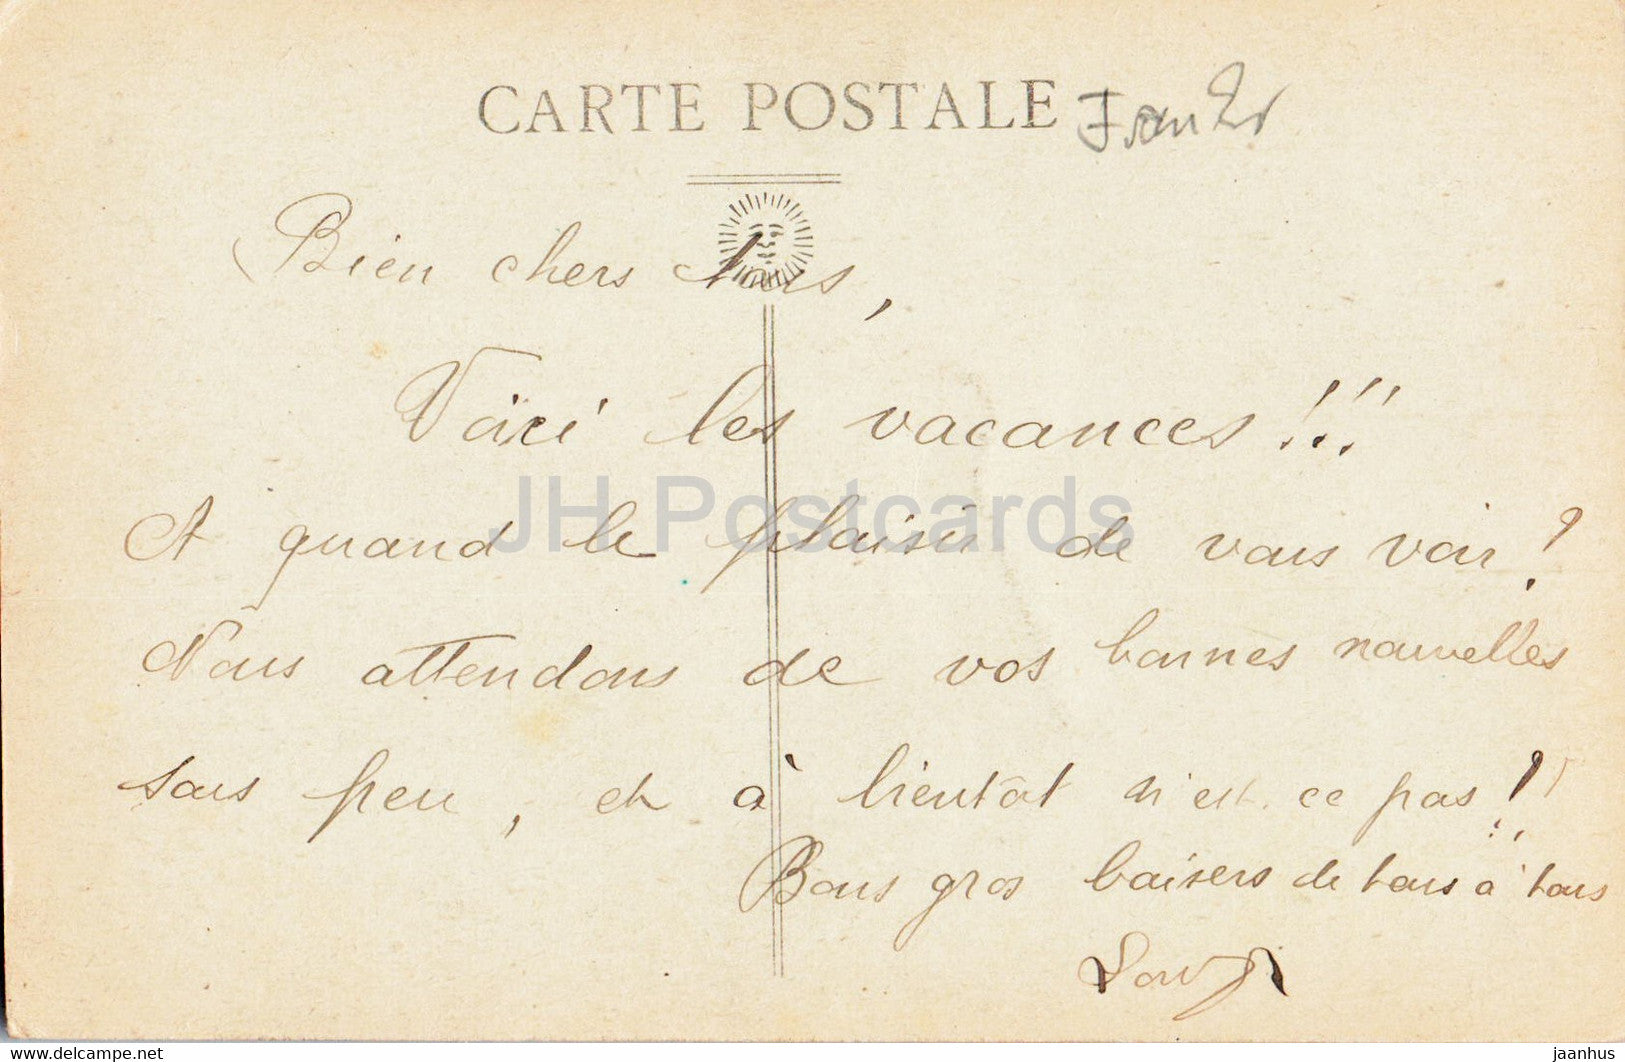 CARTE POSTALE
Bien chers tous,
Voici les vacances!!!
JH Postcards
A quand le plaisir de vous voir?
Nous attendons de vos bonnes nouvelles
sous peu, et à bientôt n'est-ce pas!!
Bons gros baisers de tous à tous
www.delcampe.net
jaanhus